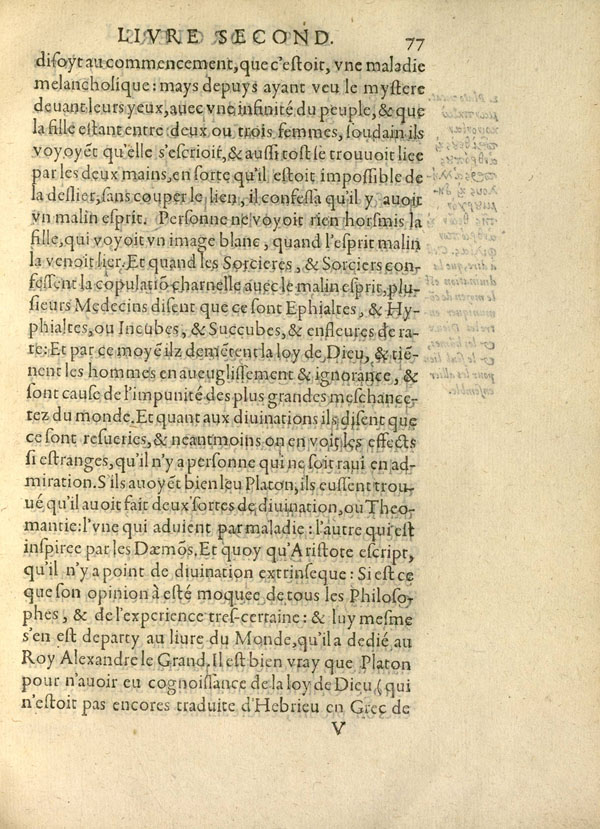 LIVRE SECOND. 77
disoyt au commencement, que c'estoit, vne maladie
melancholique: mays depuys ayant veu le mystere
deuant leurs yeux, auec vne infinité du peuple, & que
la fille estant entre deux ou trois femmes, soudain ils
voyoyẽt qu'elle s'escrioit, & aussi tost se trouuoit liee
par les deux mains, en sorte qu'il estoit impossible de
la deslier, sans couper le lien, il confessa qu'il y auoit
vn malin esprit. Personne ne voyoit rien horsmis la
fille, qui voyoit vn image blanc, quand l'esprit malin
la venoit lier. Et quand les Sorcieres, & Sorciers con-
fessent la copulatiõ charnelle auec le malin esprit, plu-
sieurs Medecins disent que ce sont Ephialtes, & Hy-
phialtes, ou Incubes, & Succubes, & enfleures de ra-
te: Et par ce moyẽ ilz demẽtent la loy de Dieu, & tiẽ-
nent les hommes en aueuglissement & ignorance, &
sont cause de l'impunité des plus grandes meschance-
tez du monde. Et quant aux diuinations ils disent que
ce sont resueries, & neantmoins on en voit les effects
si estranges, qu'il n'y a personne qui ne soit raui en ad-
miration. S'ils auoyẽt bien leu Platon, ils eussent trou-
ué qu'il auoit fait deux sortes de diuination, ou Theo-
mantie: l'vne qui aduient par maladie: l'autre qui est
inspiree par les Dæmõs, Et quoy qu'Aristote escript,
qu'il n'y a point de diuination extrinseque: Si est ce
que son opinion à esté moquee de tous les Philoso-
phes, & de l'experience tres-certaine: & luy mesme
s'en est departy au liure du Monde, qu'il a dedié au
Roy Alexandre le Grand. Il est bien vray que Platon
pour n'auoir eu cognoissance de la loy de Dieu, (qui
n'estoit pas encores traduite d'Hebrieu en Grec de
V